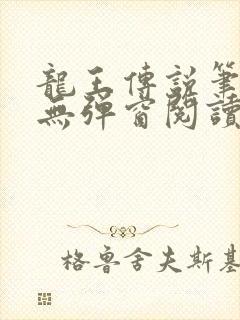 龍王傳說筆
無彈窗閱讀
格魯舍夫斯基